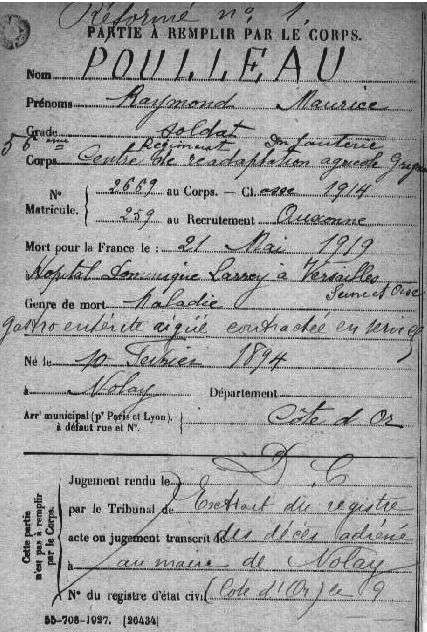 Réformé n° 1
PARTIE À REMPLIR PAR LE CORPS.
Nom POULLEAU
Prénoms Raymond Maurice
Grade soldat
56 eme Régiment d'Infanterie
Corps Centre de réadaptation agricole
N° Matricule. 2669 au Corps. — Classe 1914
259 au Recrutement Auxonne
Mort pour la France le : 21 Mai 1919
à Hopital Dominique Larrey à Versailles
Seine et Oise
Genre de mort Maladie
gastro entérite aigüe contractée en service
Né le 10 Fevrier 1894
à Nolay Département
Côte d'Or
Arr† municipal (p† Paris et Lyon),
à défaut rue et N°.
D. C
Cette partie n'est pas à remplir par le Corps.
Jugement rendu le
par le Tribunal de Extrait du registre
acte ou jugement transcrit le des décès adréssé
à au maire de Nolay
N° du registre d'état civil (Côte d'Or) le 9
55-708-1927. [26434]